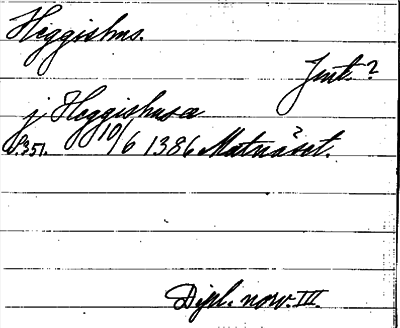 Heggishus.
Jmt. ?
j Heggishusa
s. 351. 10/6 1386 Matnäset. ?
Dipl. norv. III.